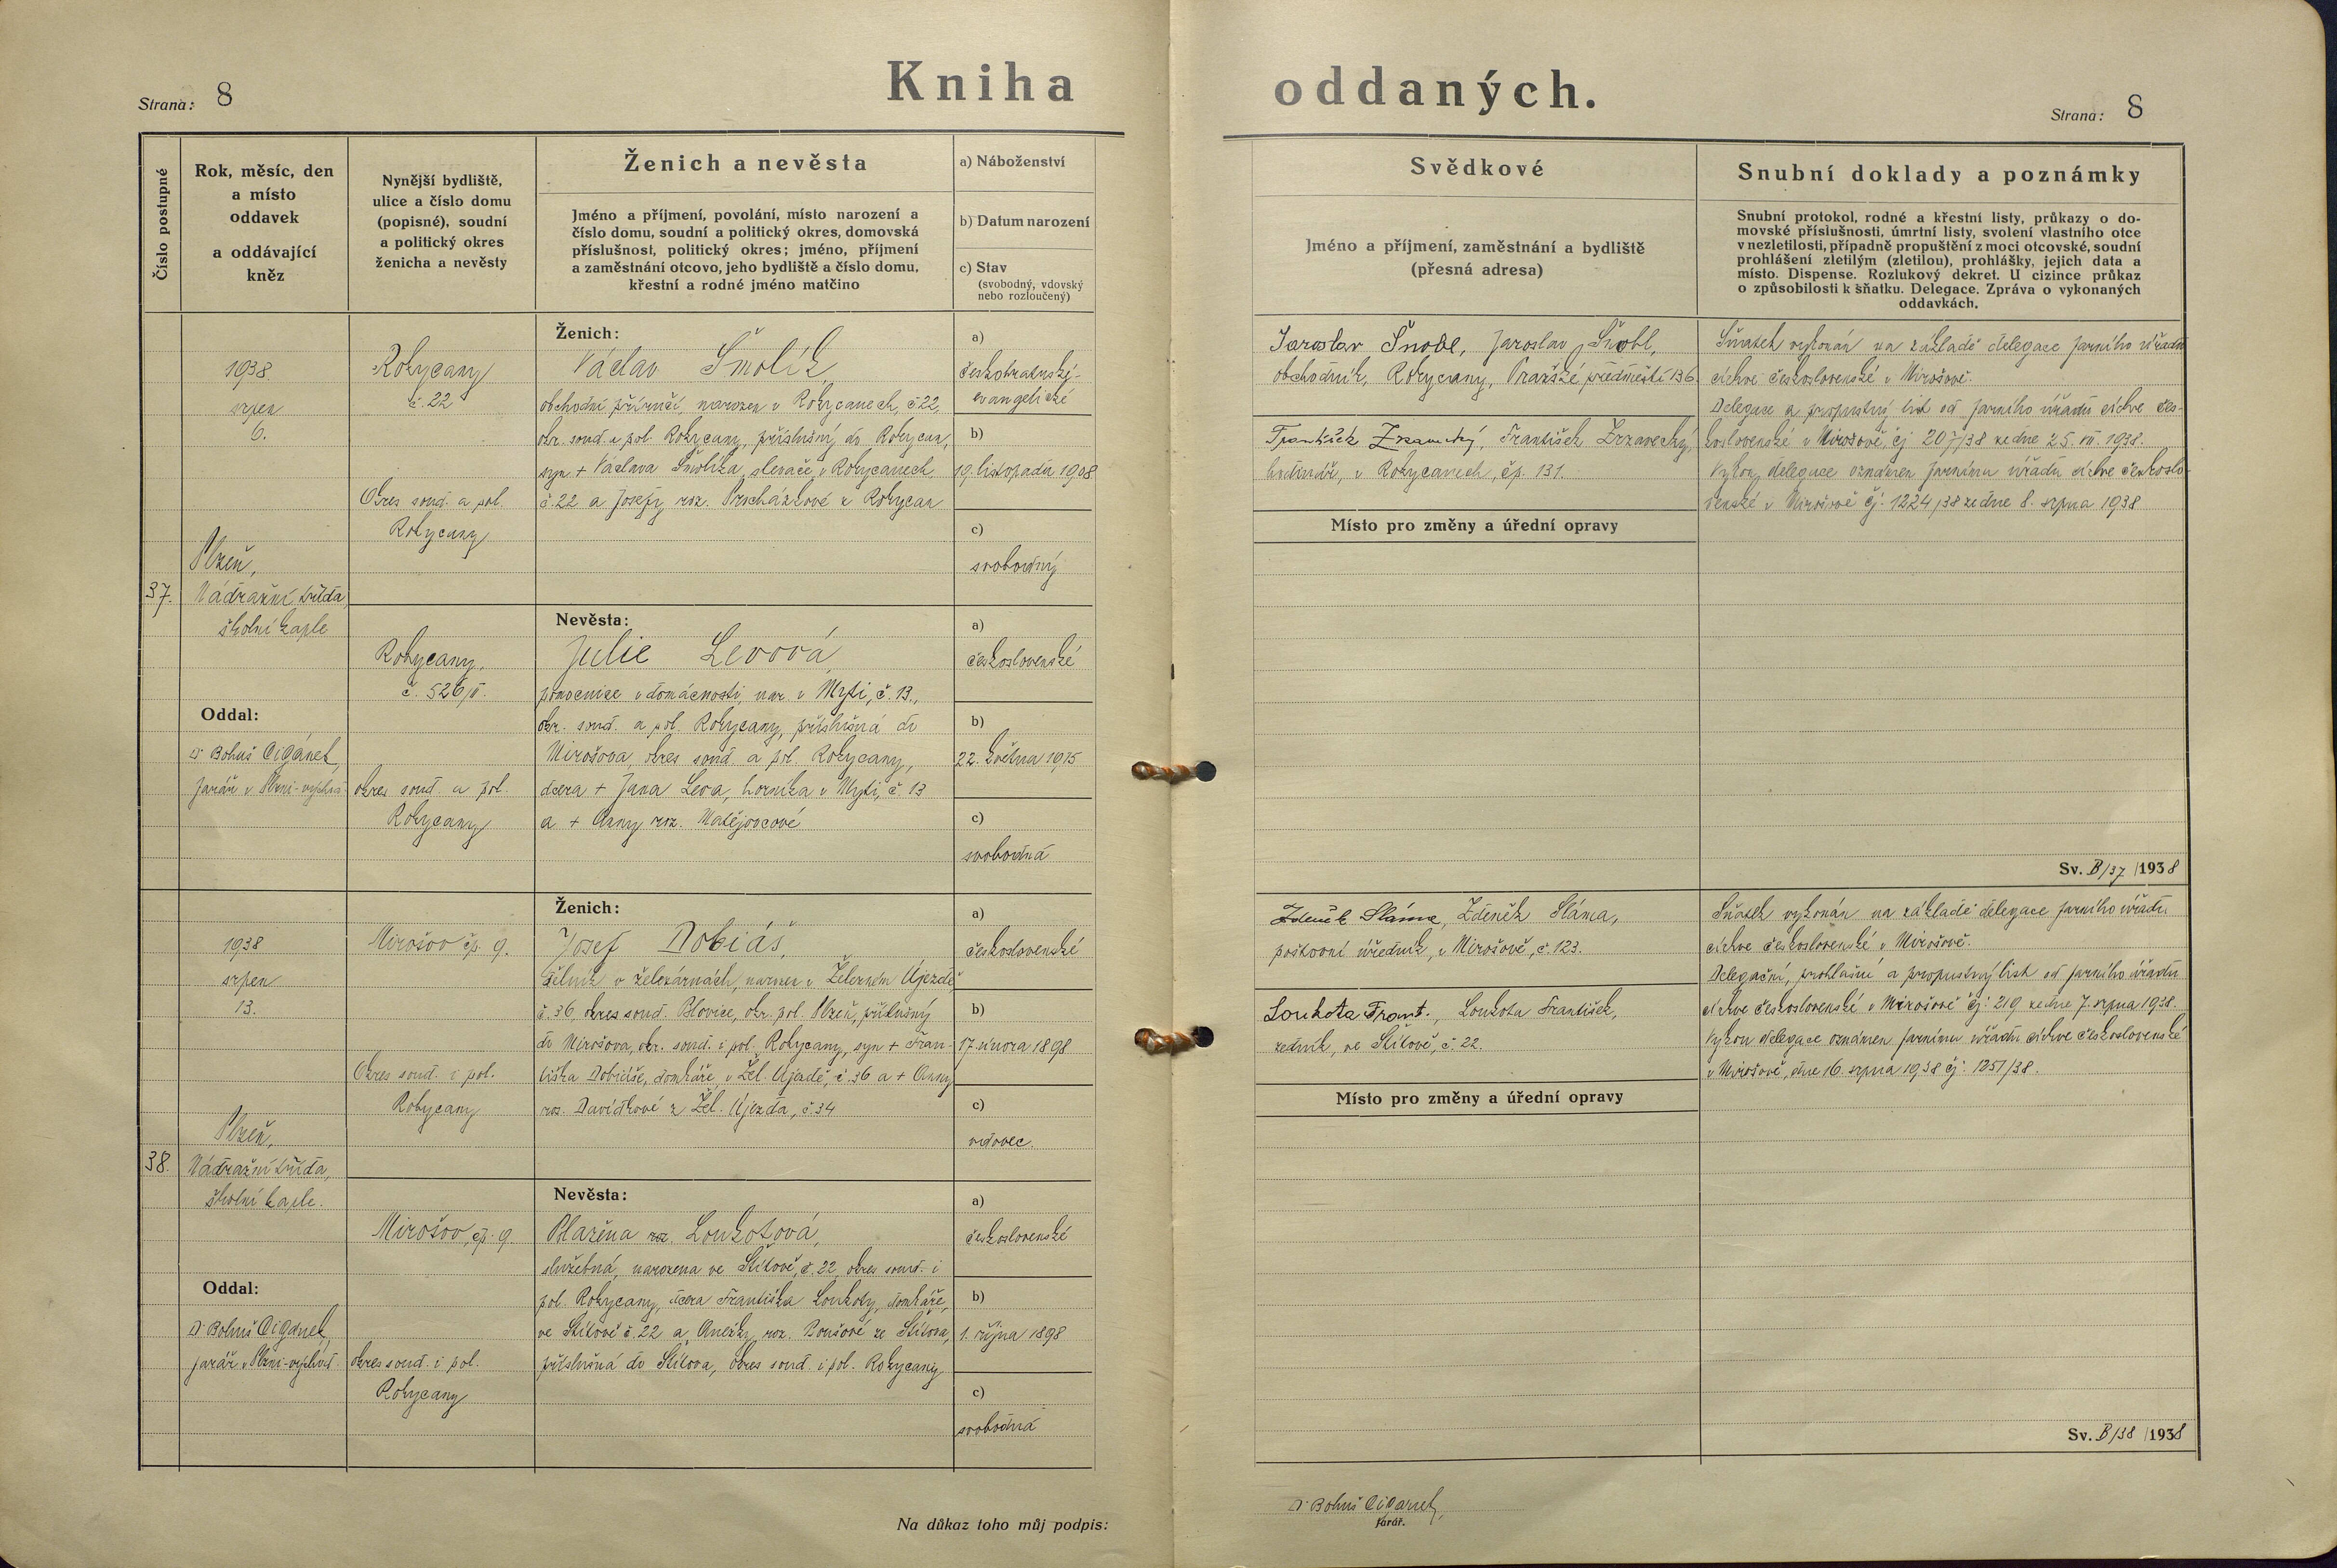 Strana: 8
Kniha oddaných.
Strana: 8
Číslo postupné
Rok, měsíc, den
a místo
oddavek
a oddávající
kněz
Nynější bydliště,
ulice a číslo domu
(popisné), soudní
a politický okres
ženicha a nevěsty
Ženich a nevěsta
Jméno a příjmení, povolání, místo narození a
číslo domu, soudní a politický okres, domovská
příslušnost, politický okres; jméno, příjmení
a zaměstnání otcovo, jeho bydliště a číslo domu,
křestní a rodné jméno matčino
a) Náboženství
b) Datum narození
c) Stav
(svobodný, vdovský
nebo rozloučený)
Svědkové
Jméno a příjmení, zaměstnání a bydliště
(přesná adresa)
Snubní doklady a poznámky
Snubní protokol, rodné a křestní listy, průkazy o do-
movské příslušnosti, úmrtní listy, svolení vlastního otce
v nezletilosti, případně propuštění z moci otcovské, soudní
prohlášení zletilým (zletilou), prohlášky, jejich data a
místo. Dispense. Rozlukový dekret. U cizince průkaz
o způsobilosti k sňatku. Delegace. Zpráva o vykonaných
oddavkách.
37.
1938
srpen
6.
Plzeň,
Nádražní třída
školní kaple
Oddal:
Dr Bohuš Cigánek,
farář v Plzni-východ
Rokycany
č. 22
Okres soud. a pol.
Rokycany
Ženich:
Václav Smolík,
obchodní příručí, narozen v Rokycanech, č 22,
okr. soud. a pol. Rokycany, příslušný do Rokycan,
syn + Václava Smolíka, slevače, v Rokycanech
č. 22 a Josefy roz. Procházkové z Rokycan
a)
českobratrské-
evangelické
b)
19. listopadu 1908
c)
svobodný
Rokycany,
č. 526/II.
okres soud. a pol.
Rokycany
Nevěsta:
Julie Levová,
pomocnice v domácnosti, nar. v Mýti, č. 13.,
okr. soud. a pol. Rokycany, příslušná do
Mirošova, okres soud. a pol. Rokycany,
dcera + Jana Leva, horníka v Mýti, č. 13
a + Anny roz. Matějovcové
a)
československé
b)
22. května 1915
c)
svobodná
Jaroslav Šnobl, Jaroslav Šnobl,
obchodník, Rokycany, Pražské předměstí 136
František Zrzavecký, František Zrzavecký,
hodinář, v Rokycanech, čp. 131.
Místo pro změny a úřední opravy
Sňatek vykonán na základě delegace farního úřadu
církve československé v Mirošově.
Delegace a propustný list od farního úřadu církve čes-
koslovenské v Mirošově, čj 207/38 ze dne 25. VII. 1938.
Výkon delegace oznámen farnímu úřadu církve českoslo-
venské v Mirošově čj. 1224/38 ze dne 8. srpna 1938
Sv. B/37 /1938
38.
1938
srpen
13.
Plzeň,
Nádražní třída,
školní kaple.
Oddal:
Dr Bohuš Cigánek,
farář v Plzni-východ
Mirošov čp. 9.
Okres soud. i pol.
Rokycany
Ženich:
Josef Dobiáš,
dělník v železárnách, narozen v Železném Újezdě
č. 36 okres soud. Blovice, okr. pol. Plzeň, příslušný
do Mirošova, okr. soud. i pol. Rokycany, syn + Fran-
tiška Dobiáše, domkáře, v Žel. Újezdě, č. 36 a + Anny
roz. Davídkové z Žel. Újezda, č. 34
a)
československé
b)
17. února 1898
c)
vdovec.
Mirošov, čp. 9.
okres soud. i pol.
Rokycany
Nevěsta:
Blažena roz. Loukotová,
služebná, narozena ve Štítově, č. 22, okres soud. i
pol. Rokycany, dcera Františka Loukoty, domkáře,
ve Štítově č. 22 a Anežky roz. Boušové ze Štítova,
příslušná do Štítova, okres soud. i pol. Rokycany
a)
československé
b)
1. října 1898
c)
svobodná
Zdeněk Sláma, Zdeněk Sláma,
poštovní úředník, v Mirošově, č. 123.
Loukota Frant., Loukota František,
zedník, ve Štítově, č. 22.
Místo pro změny a úřední opravy
Sňatek vykonán na základě delegace farního úřadu
církve československé v Mirošově.
Delegační, prohlašní a propustný list od farního úřadu
církve československé v Mirošově čj. 219 ze dne 7. srpna 1938.
Výkon delegace oznámen farnímu úřadu církve československé
v Mirošově, dne 16. srpna 1938 čj. 1251/38.
Sv. B/38 /1938
Na důkaz toho můj podpis:
Dr Bohuš Cigánek,
farář.